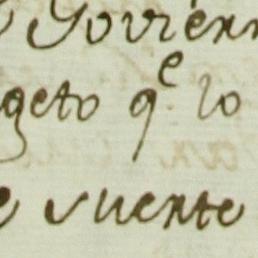 Goviern
geto q^e lo
e suerte